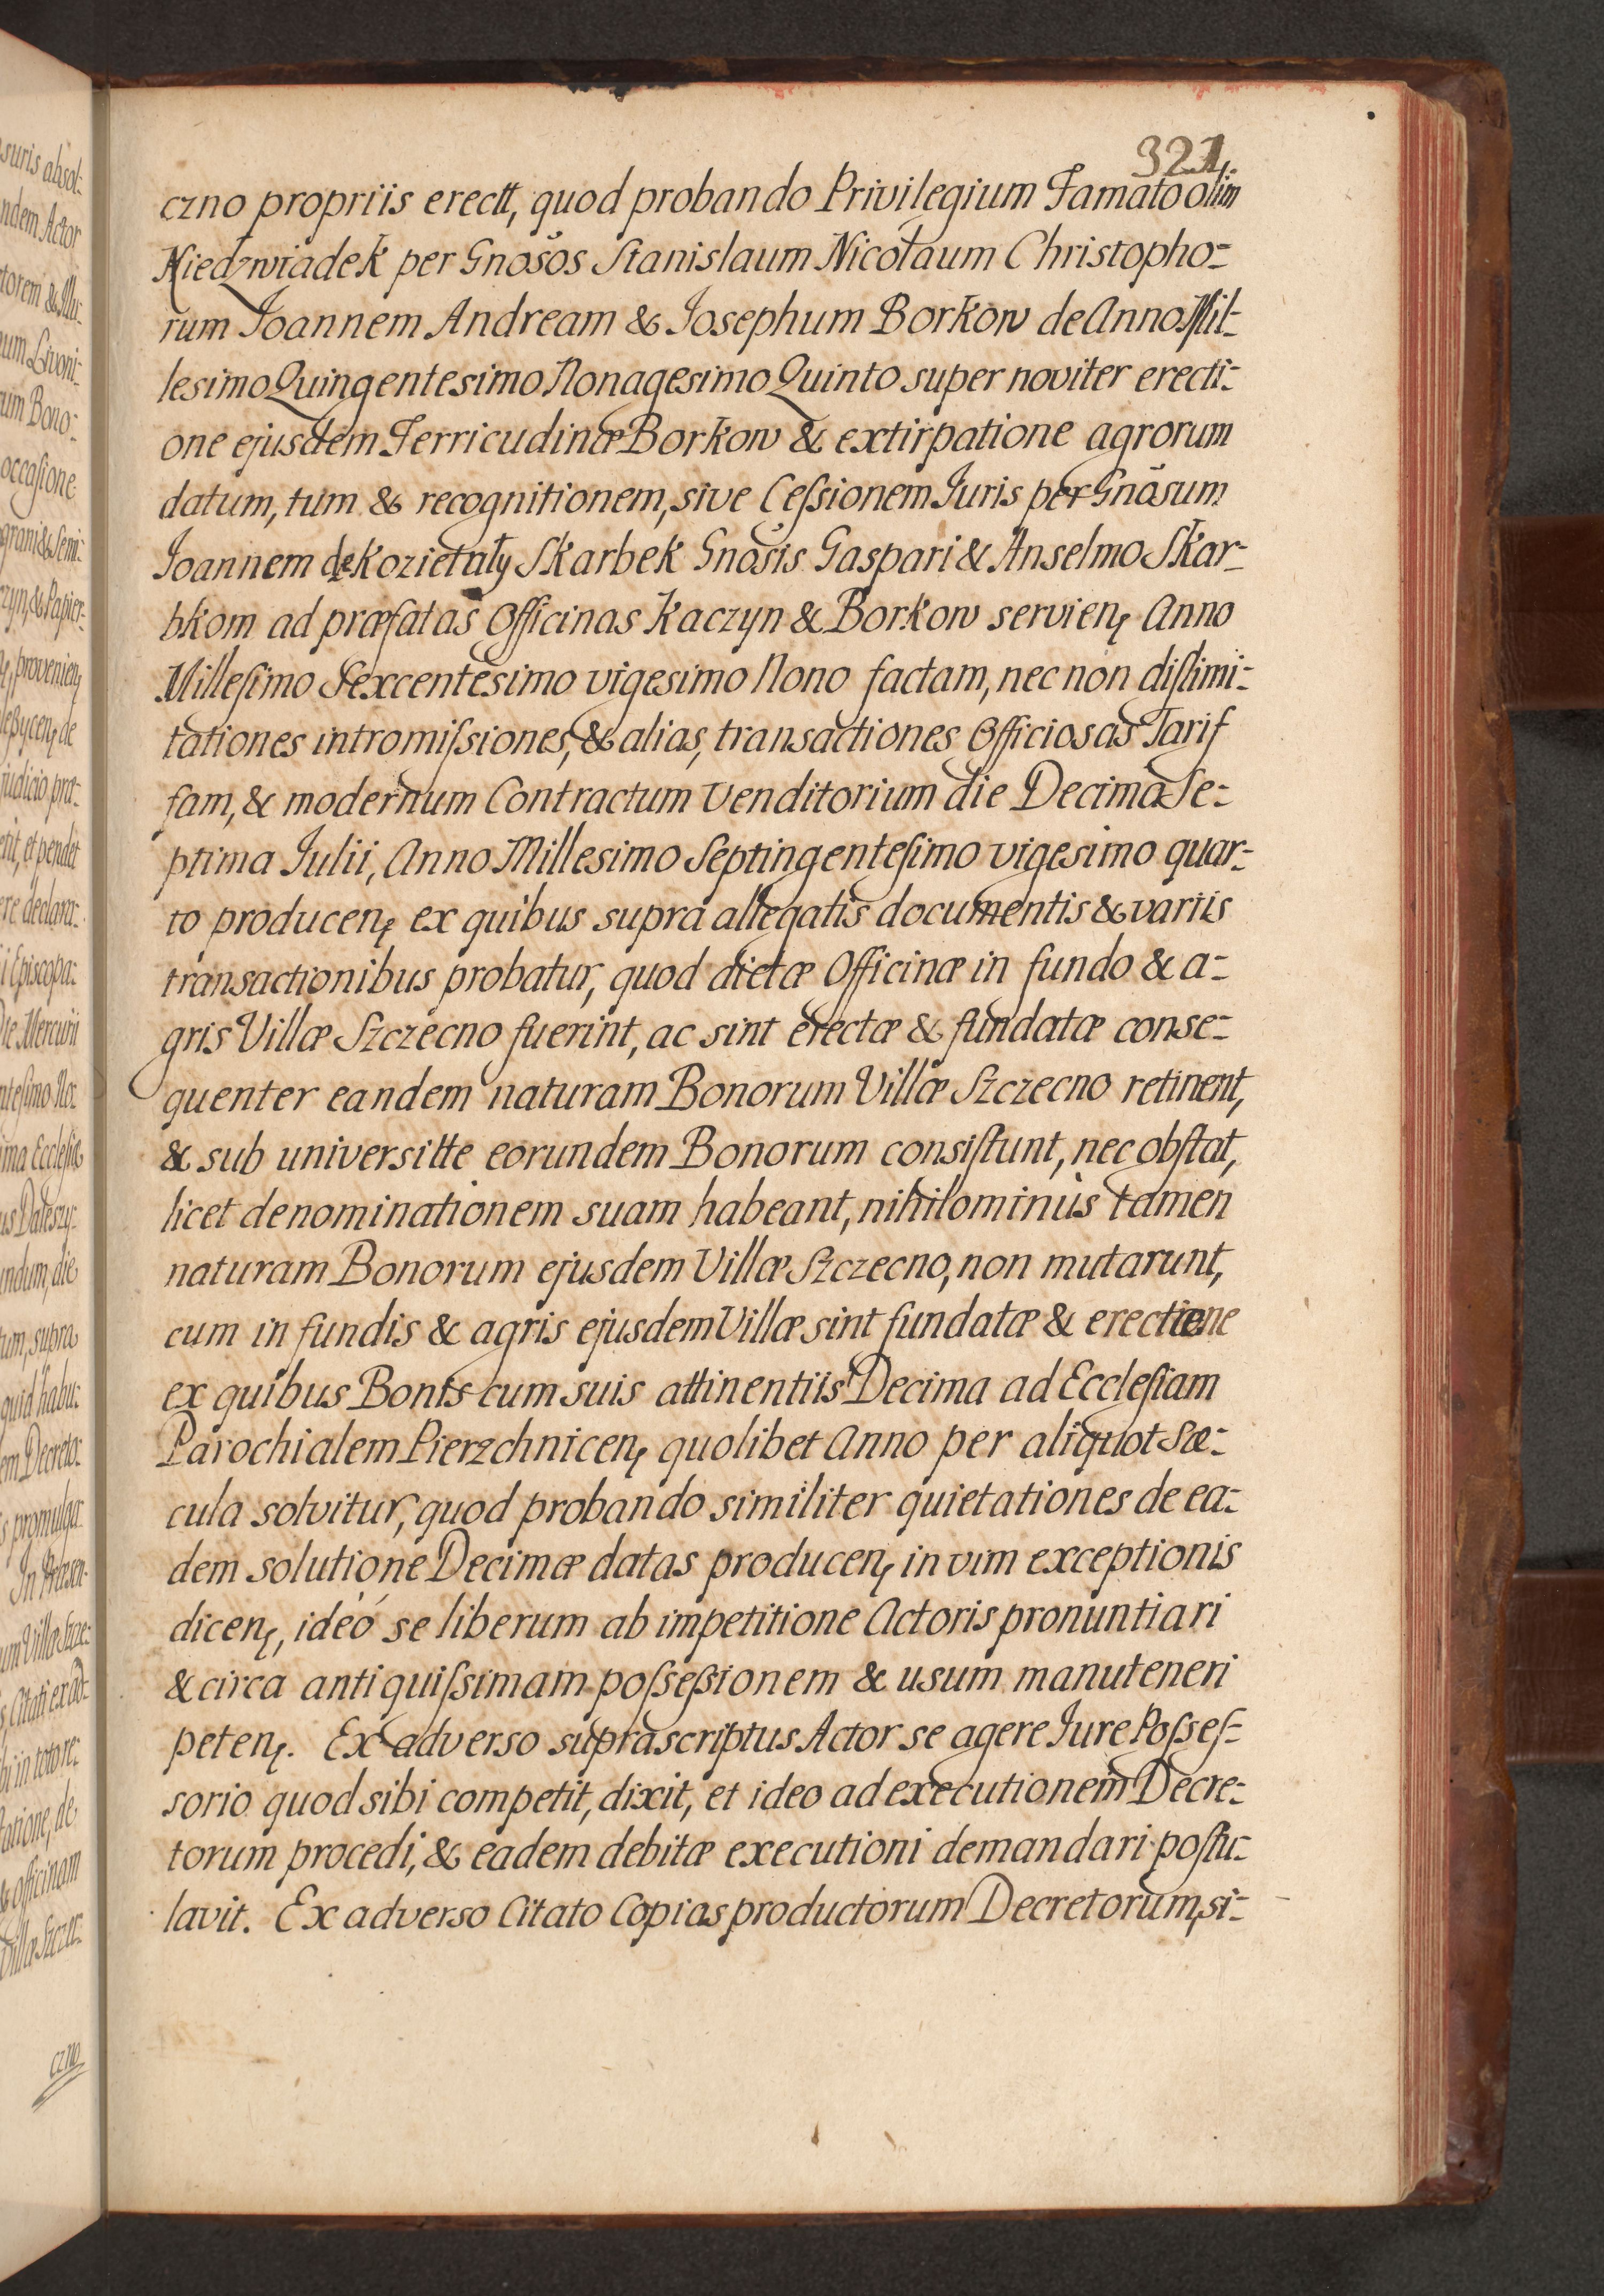 321.
czno propriis erectt, quod probando Privilegium Famato olim
Niedzwiadek per Gnosos Stanislaum Nicolaum Christopho-
rum Ioannem Andream & Iosephum Borkow de Anno Mil-
lesimo Quingentesimo Nonagesimo Quinto super noviter erecti-
one ejusdem Ferricudinæ Borkow & extirpatione agrorum
datum, tum & recognitionem, sive Ceſsionem Iuris per Gnāsum
Ioannem de Kozietuły Skarbek Gnosis Gaspari & Anselmo Skar-
bkom ad præfatas Officinas Kaczyn & Borkow servien, Anno
Milleſimo Sexcentesimo vigesimo Nono factam, nec non diſlimi-
tationes intromiſsiones, & alias, transactiones Officiosas Tarif
fam, & modernum Contractum Venditorium die Decima Se-
ptima Iulii, Anno Millesimo Septingenteſimo vigesimo quar-
to producen, ex quibus supra allegatis documentis & variis
transactionibus probatur, quod dictæ Officinæ in fundo & a-
gris Villæ Szczecno fuerint, ac sint erectæ & fundatæ conse-
quenter eandem naturam Bonorum Villæ Szczecno retinent,
& sub universitte eorundem Bonorum consiſtunt, nec obſtat,
licet denominationem suam habeant, nihilominùs tamen
naturam Bonorum ejusdem Villæ Szczecno, non mutarunt,
cum in fundis & agris ejusdem Villæ sint fundatæ &
ex quibus Bonis cum suis attinentiis Decima ad Eccleſiam
Parochialem Pierzchnicen, quolibet Anno per aliquot Sæ-
cula solvitur, quod probando similiter quietationes de ea-
dem solutione Decimæ datas producen, in vim exceptionis
dicen, ideó se liberum ab impetitione Actoris pronuntiari
& circa antiquiſsimam poſseſsionem & usum manuteneri
peten. Ex adverso suprascriptus Actor se agere Iure Poſseſ-
sorio quod sibi competit, dixit, et ideo ad executionem Decre-
torum procedi, & eadem debitæ executioni demandari poſtu-
lavit. Ex adverso Citato Copias productorum Decretorum, si-